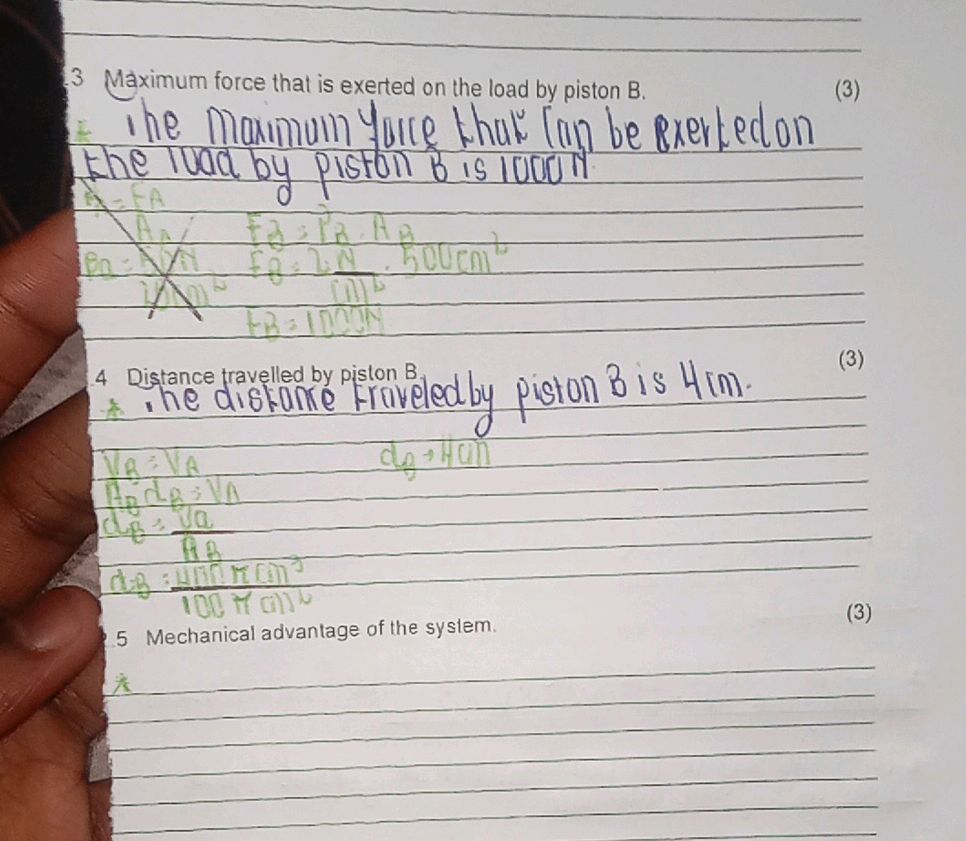 .3 Maximum force that is exerted on the load by piston B. (3)
* The maximum force that can be exerted on
the load by piston B is 1000N.
= FA
A A
FB = PB . AB
FB = 2 N . 500cm²
cm²
FB = 1000N
.4 Distance travelled by piston B. (3)
* The distance traveled by piston B is 4cm.
VB = VA
dB = 4cm
AB dB = VA
dB = Va
AB
dB = 400 π cm³
100 π cm²
.5 Mechanical advantage of the system. (3)
*